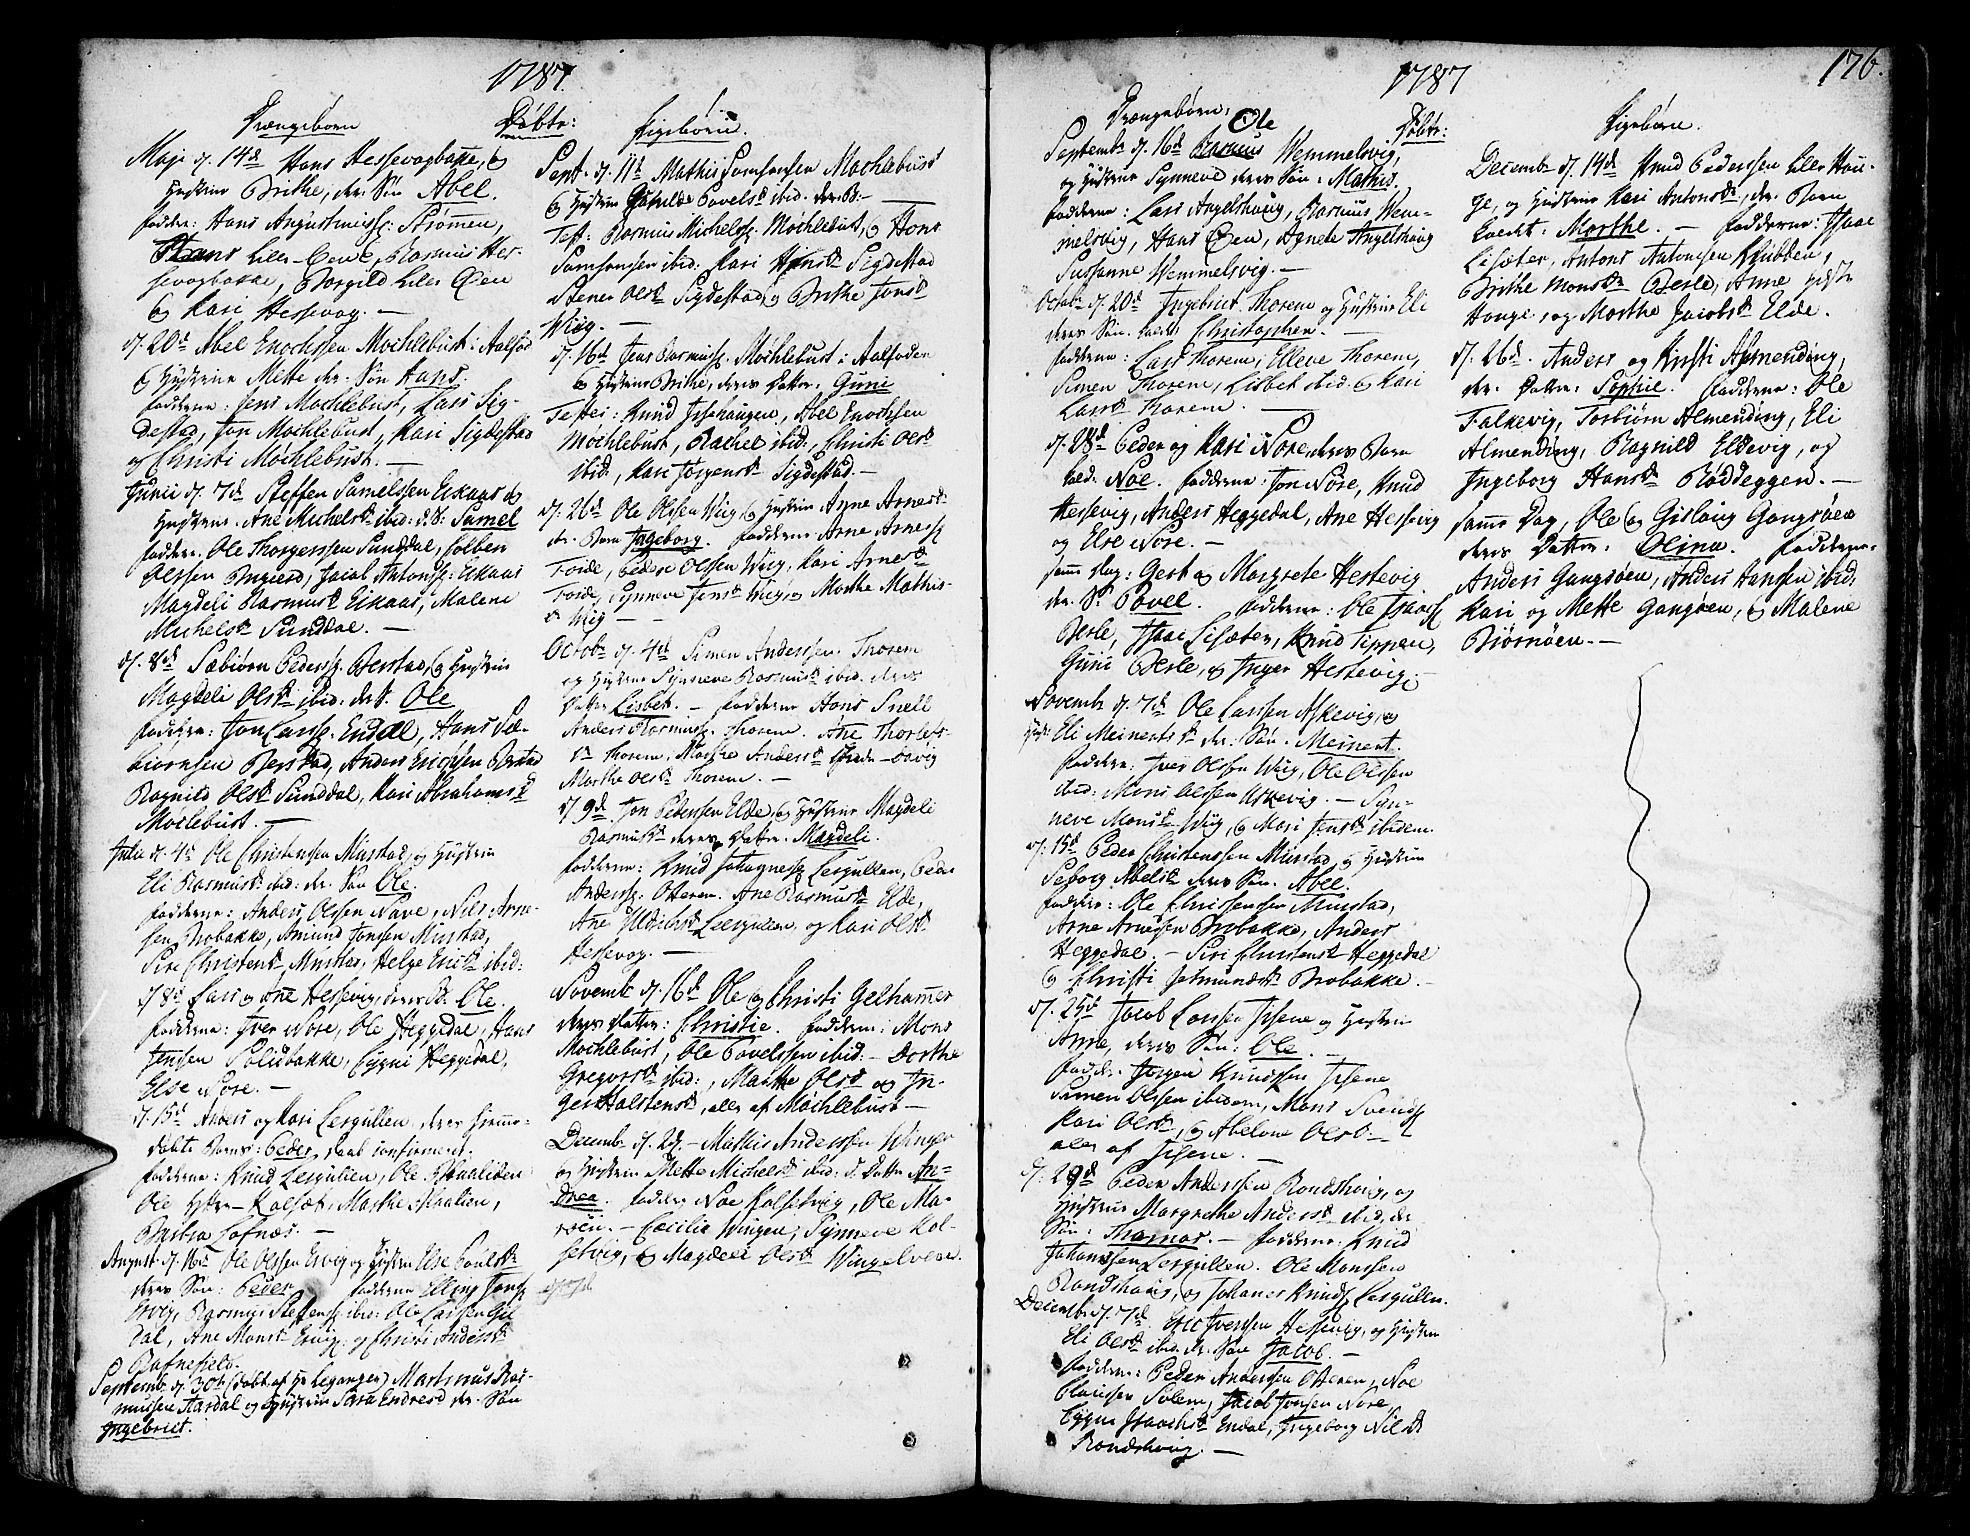 1787.
Drængebørn Døbte:
Maji d. 14de Hans Hessevogbakke, og
Hustrue Brithe, der: Søn Abel.
Faddere: Hans Augustinussen Strømmen,
Hans Lille-Øen, Rasmus Hes-
sevogbakke, Borgild Lille Øen
og Kari Hessevog. —
d. 20de Abel Enochssen Mochlebust i Aalfod
og Hustrue Mette der: Søn Hans.
Fadderne: Jens Mochlebust, Lars Sig-
destad, Jon Mochlebust, Kari Sigdestad
og Christi Mochlebust. —
Junii d. 7de Steffen Samelssen Eikaas og
Hustrue Ane Michelsdr ibid: d. S: Samel
Faddere. Ole Thorgerssen Sunddal, Colben
Olssen, Jacob Antonss: Eikaas
Magdeli Rasmusdr Eikaas, Malene
Michelsdr Sunddal. —
d. 8de Sæbiørn Pederss. Berstad, og Hustrue
Magdeli Olsdr ibid. der S. Ole
Faddere: Jon Larss. Endal, Hans Sæ-
biørnsen Berstad, Anders Erichsen Berstad
Ragnild Olsdr Sunddal, Kari Abrahamsdr
Mochlebust. —
Julii d. 4de Ole Christensen Murstad, og Hustrue
Eli Rasmusdr ibid: der. Søn Ole.
Fadderne: Anders Olssen Nave, Nils Arne-
sen Brobakke, Amund Jonsen Murstad,
Sire Christensdr Murstad, Helge Ericsdr ibid:
d. 8de Lars og Ane Hessevig, deres S: Ole.
Fadderne: Iver Nore, Ole Heggedal, Hans
Jenssen Solidbakke, Eygni Heggedal,
Else Nore. —
d. 15de Anders og Kari Lesgullen, deres hiemme-
døbte Barn: Peder, Daab confirmeret.
Fadderne: Knud Lesgullen, Ole
Marthe
August d. 16de Ole Olssen Ervig og Hustrue Else Povelsdr
deres Søn: Peder. Fadderne Elling Jonss
Ervig, Rasmus Steffenss ibid: Ole Larssen
dal, Ane Monsdr Ervig. og Christi Andersdr
Septemb. d. 30te (døbt af Hr Leganger) Martinus Ras-
mussen Aardal og Hustrue Sara Endresdr der. Søn
Ingebriet.
Pigebørn.
Sept. d. 11te Mathis Samsonsen Mochlebust
og Hustrue Gunilde Povelsdr ibid. der B: —
Test: Rasmus Michelss. Mochlebust, og Hans
Samsonsen ibid: Kari Hansdr Sigdestad
Stener Olsdr Sigdestad, og Brithe Jonsdr
Wiig. —
d. 16de Jens Rasmuss. Mochlebust i Aalfoden
og Hustrue Brithe, deres Datter: Guni
Testes: Knud Isehaugen, Abel Enochssen
Mochlebust, Rachel ibid., Christi Olsdr
ibid., Kari Jørgensdr Sigdestad. —
d. 26de Ole Olssen Wiig, og Hustrue Anne Arnesdr
dr. Barn Ingeborg. Fadderne Arne Arness
Førde, Peder Olssen Wiig, Kari Arnesdr
Førde, Synneve Jensdr Wiig, og Marthe Mathis-
dr Wiig — —
Octobr d. 4de Simen Anderssen Thorem
og Hustrue Synneve Rasmusdr ibid. deres
Datter Lisbet. — Fadderne Hans Snell
Anders Rasmuss. Thorem. Ane Thorlefs-
dr Thorem. Marthe Andersdr
Marthe Olsdr Thorem. —
d. 9de Jon Pederssen Elde, og Hustrue Magdeli
Rasmusdr deres Datter. Magdeli.
Fadderne: Knud Johanness Lesgullen, Peder
Anderss. Otteren. Ane Rasmusdr Elde,
Ane Lesgullen, og Kari Olsdr
Hessevog. —
Novemb. d. 16de Ole og Christi Gelhamer
deres Datter: Christie. Fadderne: Mons
Mochlebust, Ole Povelssen ibid: — Dorthe
Gregorsdr ibid:, Marthe Olsdr og In-
ger Halstensdr, alle af Mochlebust —
Decembr d. 2d. — Mathis Anderssen Wingen
og Hustrue Mette Michelsdr ibid: d. Datter An-
drea. Faddere Noe Kolsetvig, Ole Ma-
røen. — Cæcilia Wingen, Synneve Kol-
setvig, og Magdeli Olsdr Wingelven.
1787
176.
Drængebørn, Døbte:
Septembr d. 16de Rasmus Ole Wemmelsvig,
og Hustrue Synneve deres Søn: Mathis.
Fadderne: Lars Angelshaug, Rasmus Wem-
melsvig, Hans Øen, Agnete Angelshaug
Sussanne Wemmelsvig. —
Octobr d. 20de Ingebrict Thorem og Hustrue Eli
deres Søn. kaldt Christopher. —
Fadderne: Lars Thorem, Elleve Thorem,
Simen Thorem, Lisbet ibid. og Kari
Larsdr Thorem. —
d. 28de Peder og Kari Nore, deres Barn
kald. Noe. Fadderne: Jon Nore, Knud
Hessevig, Anders Heggedal, Ane Hessevig
og Else Nore. —
samme Dag: Gert og Margrete Hessevig
der. S: Povel. Fadderne: Ole Isaacs
Berle, Isaac Lisæter, Knud Tippen,
Guni Berle, og Inger Hessevig. —
Novembr d. 7de Ole Larssen Askevig, og
Hust: Eli Meinertsdr der: Søn. Meinert.
Faddere: Iver Olssen Wiig, Ole Olssen
ibid: Mons Olssen Askevig. — Syn-
neve Monsdr Wiig, og Mari Jensdr ibidem.
d. 15de Peder Christenssen Murstad, og Hustrue
Seborg Abelsdr deres Søn. Abel.
Faddere: Ole Christenssen Murstad,
Arne Arnessen Brobakke, Anders
Heggedal. — Siri Christensdr Heggedal
og Christi Brobakke. —
d. 25de Jacob Larssen Isene og Hustrue
Anne, deres Søn: Ole. —
Fadder. Jørgen Knudssen Isene
Simen Olssen ibidem, Mons Svends
Kari Olsdr, og Abelone Olsdr —
alle af Isene. —
d. 29de Peder Anderssen Rondshoug, og
Hustrue Margrethe Andersdr ibid, der
Søn: Thomas. — Fadderne: Knud
Johannessen Lesgullen. Ole Monssen
Rondshoug, og Johanes Knuds Lesgullen.
Decembr d. 7de. Iverssen Hessevig, og Hustrue
Eli Olsdr ibid. der. Søn Jacob. —
Fadderne: Peder Anderssen Otteren, Noe
Clauessen Solem, Jacob Jonsen Nore,
Eygni Isaachsdr Endal, Ingeborg Nilsdr
Rondshoug. —
Pigebørn.
Decembr d. 14de Knud Pederssen Lille Hou-
ge, og Hustrue Kari Antonsdr, der. Barn
kaldt. Marthe. — Fadderne: Isaac
Lisæter, Antons Antonssen Klubben,
Brithe Monsdr Berle, Anne
Houge, og Marthe Jacobsdr Elde.
d. 26de. Anders og Kirsti Almending,
der. Datter. Sophie. Fadderne: Ole
Falkevig, Torbiørn Almending, Eli
Almending, Ragnild Eldevig, og
Ingeborg Hansdr Røddeggen. —
samme Dag, Ole og Gislaug Gangsøen
deres Datter: Olina. Fadderne:
Anders Gangsøen, Anders Hanssen ibid:
Kari og Mette Gangsøen, og Malene
Biørnøen. —